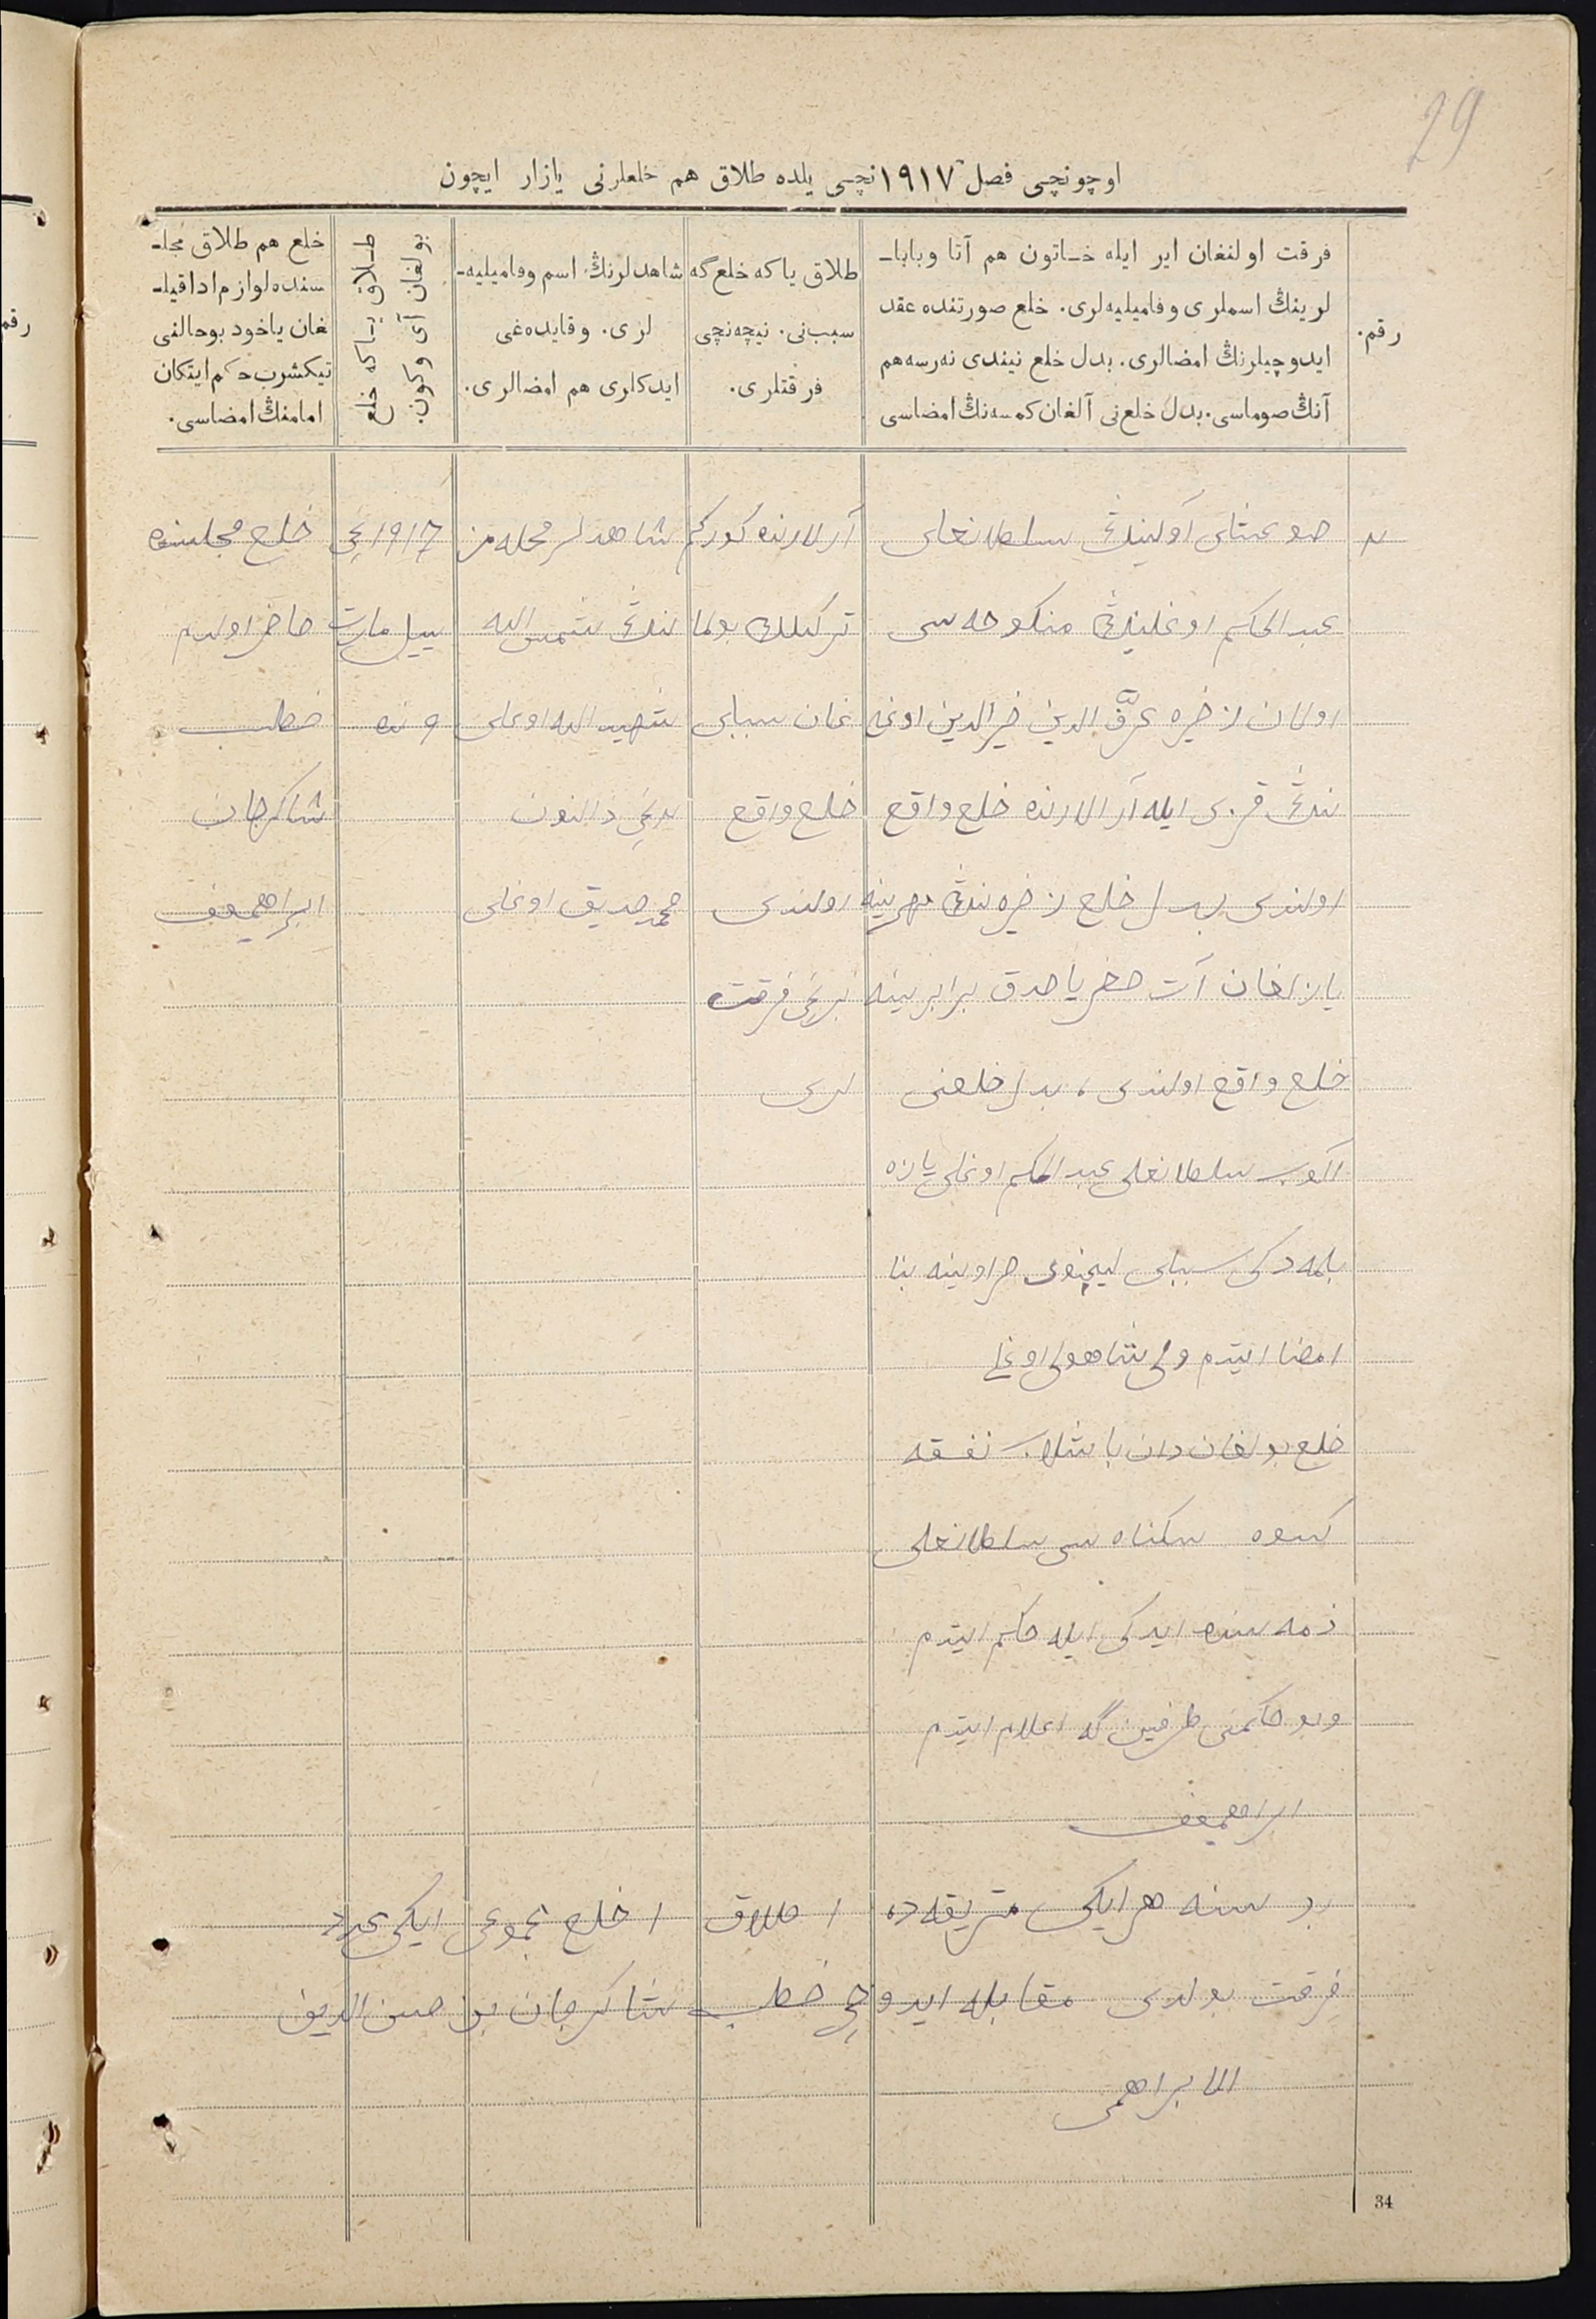 29
اوچونچی فصل ۱۹۱۷نچی یلده طلاق هم خلعلرنی یازار ایچون
رقم.
فرقت اولنغان ایر ایله خاتون هم آتا وبابا-
لرینڭ اسملری وفامیلیه‌لری. خلع صورتنده عقد
ایدوچیلرنڭ امضالری. بدل خلع نیندی نه‌رسه هم
آنڭ صوماسی. بدل خلع‌نی آلغان كمسه‌نڭ امضاسی
طلاق یاكه خلع‌گه
سبب‌نی. نیچه‌نچی
فرقتلری.
شاهدلرنڭ اسم وفامیلیه-
لری. وقایده‌غی
ایدكلری هم امضالری.
طلاق یاكه خلع
بولغان آی وكون.
خلع هم طلاق مجلـ
سنده لوازم ادا قیلـ
غان یاخود بوحالنی
تیكشرب حكم ایتكان
امامنڭ امضاسی.
سلطانعلی
عبدالحكیم اوغلینڭ منكوحه سی
اولان خیرالدین اوغلی
نندڭ قزی ایله آرالارنده خلع واقع
اولندی بدل خلع مهرینه
یازلغان آت برابرینه
خلع واقع اولندی ، بدل خلعنی
آلوب سلطانعلی عبدالحكیم اوغلی یازه
بلمه‌دكی سببلی بنا
امضا ایتدم ولی شاهولی اوغلی
خلع بولغان دان باشلاب نفقه
كسوه سكناه سی سلطانعلی
ذمه سنده ایدكی ایله حكم ایتدم
وبو حكمنی طرفین گه اعلام ایتدم
ابراهیموف
آرالارنده كوركم
تركلك بولما
غان سببلی
خلع واقع
اولندی
برنچی فرقت
لری
شاهدلر محله‌مز
نڭ شمس الله
شهید الله اوغلی
ذالنون
محمد صدیق اوغلی
1917 نچی
ییل مارت
9 نده
خلع مجلسنده
حاضر اولدم
خطیب
شاكرجان
ابراهیموف
بو سنه هر ایكی متریقه ده 1 طلاق 1 خلع مجموعی ایكی عدد
فرقت بولدی مقابله ایدوچی خطیب شاكرجان بن حسن الدین
الابراهیمی
34